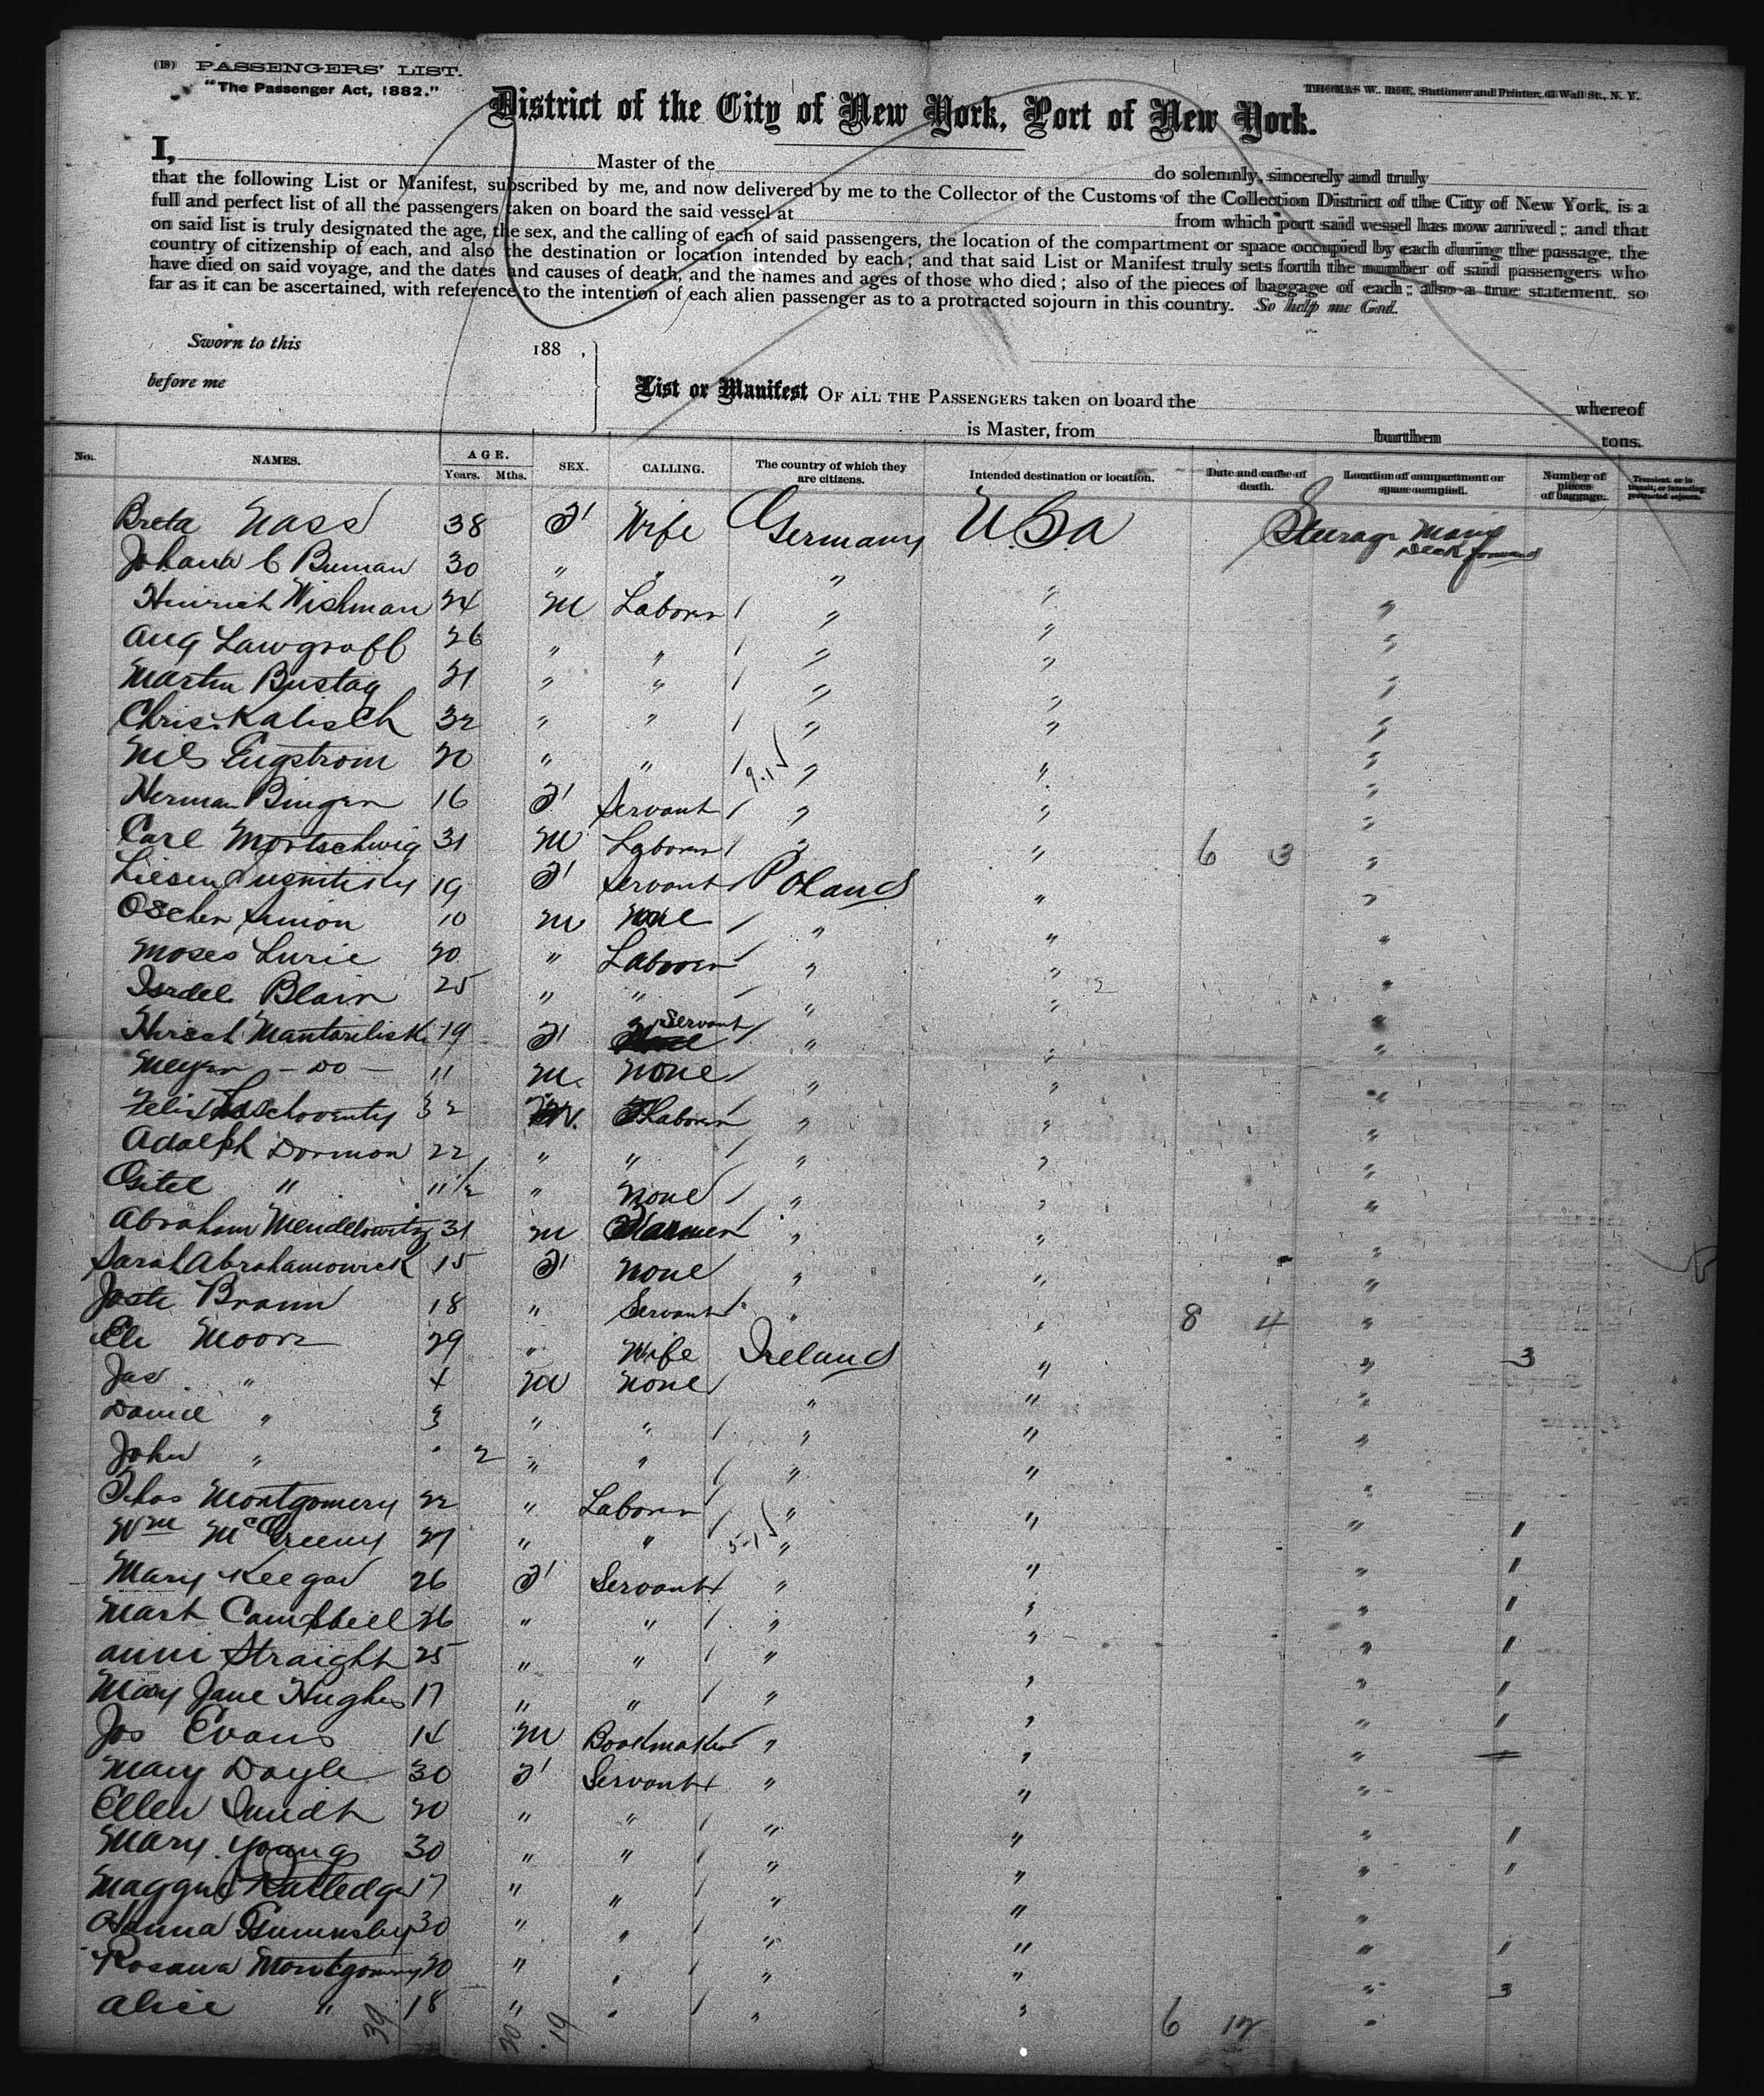 (18) PASSENGERS' LIST.
"The Passenger Act, 1882."
THOMAS W. Stationer and Printer, 61 Wall St., N. Y.
District of the City of New York, Port of New York.
I, Master of the do solemnly, sincerely and truly
that the following List or Manifest, subscribed by me, and now delivered by me to the Collector of the Customs of the Collection District of the City of New York, is a
full and perfect list of all the passengers taken on board the said vessel at from which port said vessel has now arrived; and that
on said list is truly designated the age, the sex, and the calling of each of said passengers, the location of the compartment or space occupied by each during the passage, the
country of citizenship of each, and also the destination or location intended by each; and that said List or Manifest truly sets forth the number of said passengers who
have died on said voyage, and the dates and causes of death, and the names and ages of those who died; also of the pieces of baggage of each; also a true statement, so
far as it can be ascertained, with reference to the intention of each alien passenger as to a protracted sojourn in this country. So help me God.
Sworn to this 188 ,
before me
List or Manifest OF ALL THE PASSENGERS taken on board the whereof
is Master, from burthen tons.
No. NAMES. AGE. Years. Mths. SEX. CALLING. The country of which they are citizens. Intended destination or location. Date and cause of death. Location of compartment or space occupied. Number of pieces of baggage. Transient, or in transit, or intending protracted sojourn.
Breta Nass 38 F Wife Germany U.S.a Steerage Main Deck forward
Johann C Buman 30 " " " " "
Hinrich Wishman 24 M Laborer / " " "
Aug Lawgroff 26 " " / " " "
Martin Bustag 21 " " / " " "
Chris. Kalisch 32 " " / " " "
Nils Engstrom 20 " " / 9.1 " " "
Herman Bingen 16 F Servant / " " "
Carl Mortschwig 31 M Laborer / " " 6 3 "
Liesen 19 F Servant / Poland " "
Oscher Simion 10 M None / " " "
Moses Lurie 20 " Laborer / " " "
Isrdel Blain 25 " " / " " "
Hirsch 19 F Servant / " " "
Meyer - Do - 11 M. None / " " "
Felix 32 M. Laborer / " " "
Adolph Dormon 22 " " / " " "
Gitel " 11 1/2 " None / " " "
Abraham Mendelowitz 31 M Farmer / " " "
Sarah Abrahamowick 15 F None / " " "
Joste Braun 18 " Servant / " " 8 4 "
Ele Moore 29 " Wife Ireland " " 3
Jas " 4 M None / " " "
Daniel " 3 " " / " " "
John " 2 " " / " " "
Thos Montgomery 22 " Laborer / " " " "
Wm McGreeny 27 " " 5-1 " " " "
Mary Keegan 26 F Servant / " " " "
Mart Campbell 26 " " / " " " "
Anni Straight 25 " " / " " " "
Mary Jane Hughes 17 " " / " " " "
Jos Evans 14 M Bookmaker / " " "
Mary Doyle 30 F Servant / " " "
Ellen Smidt 20 " " / " " " "
Mary Young 30 " " / " " " "
Maggie Rutledge 17 " " / " " "
Hanna 30 " " / " " " "
Rosana Montgomery 20 " " / " " " 3
Alice " 18 " " / " " 6 12 "
39 20 19